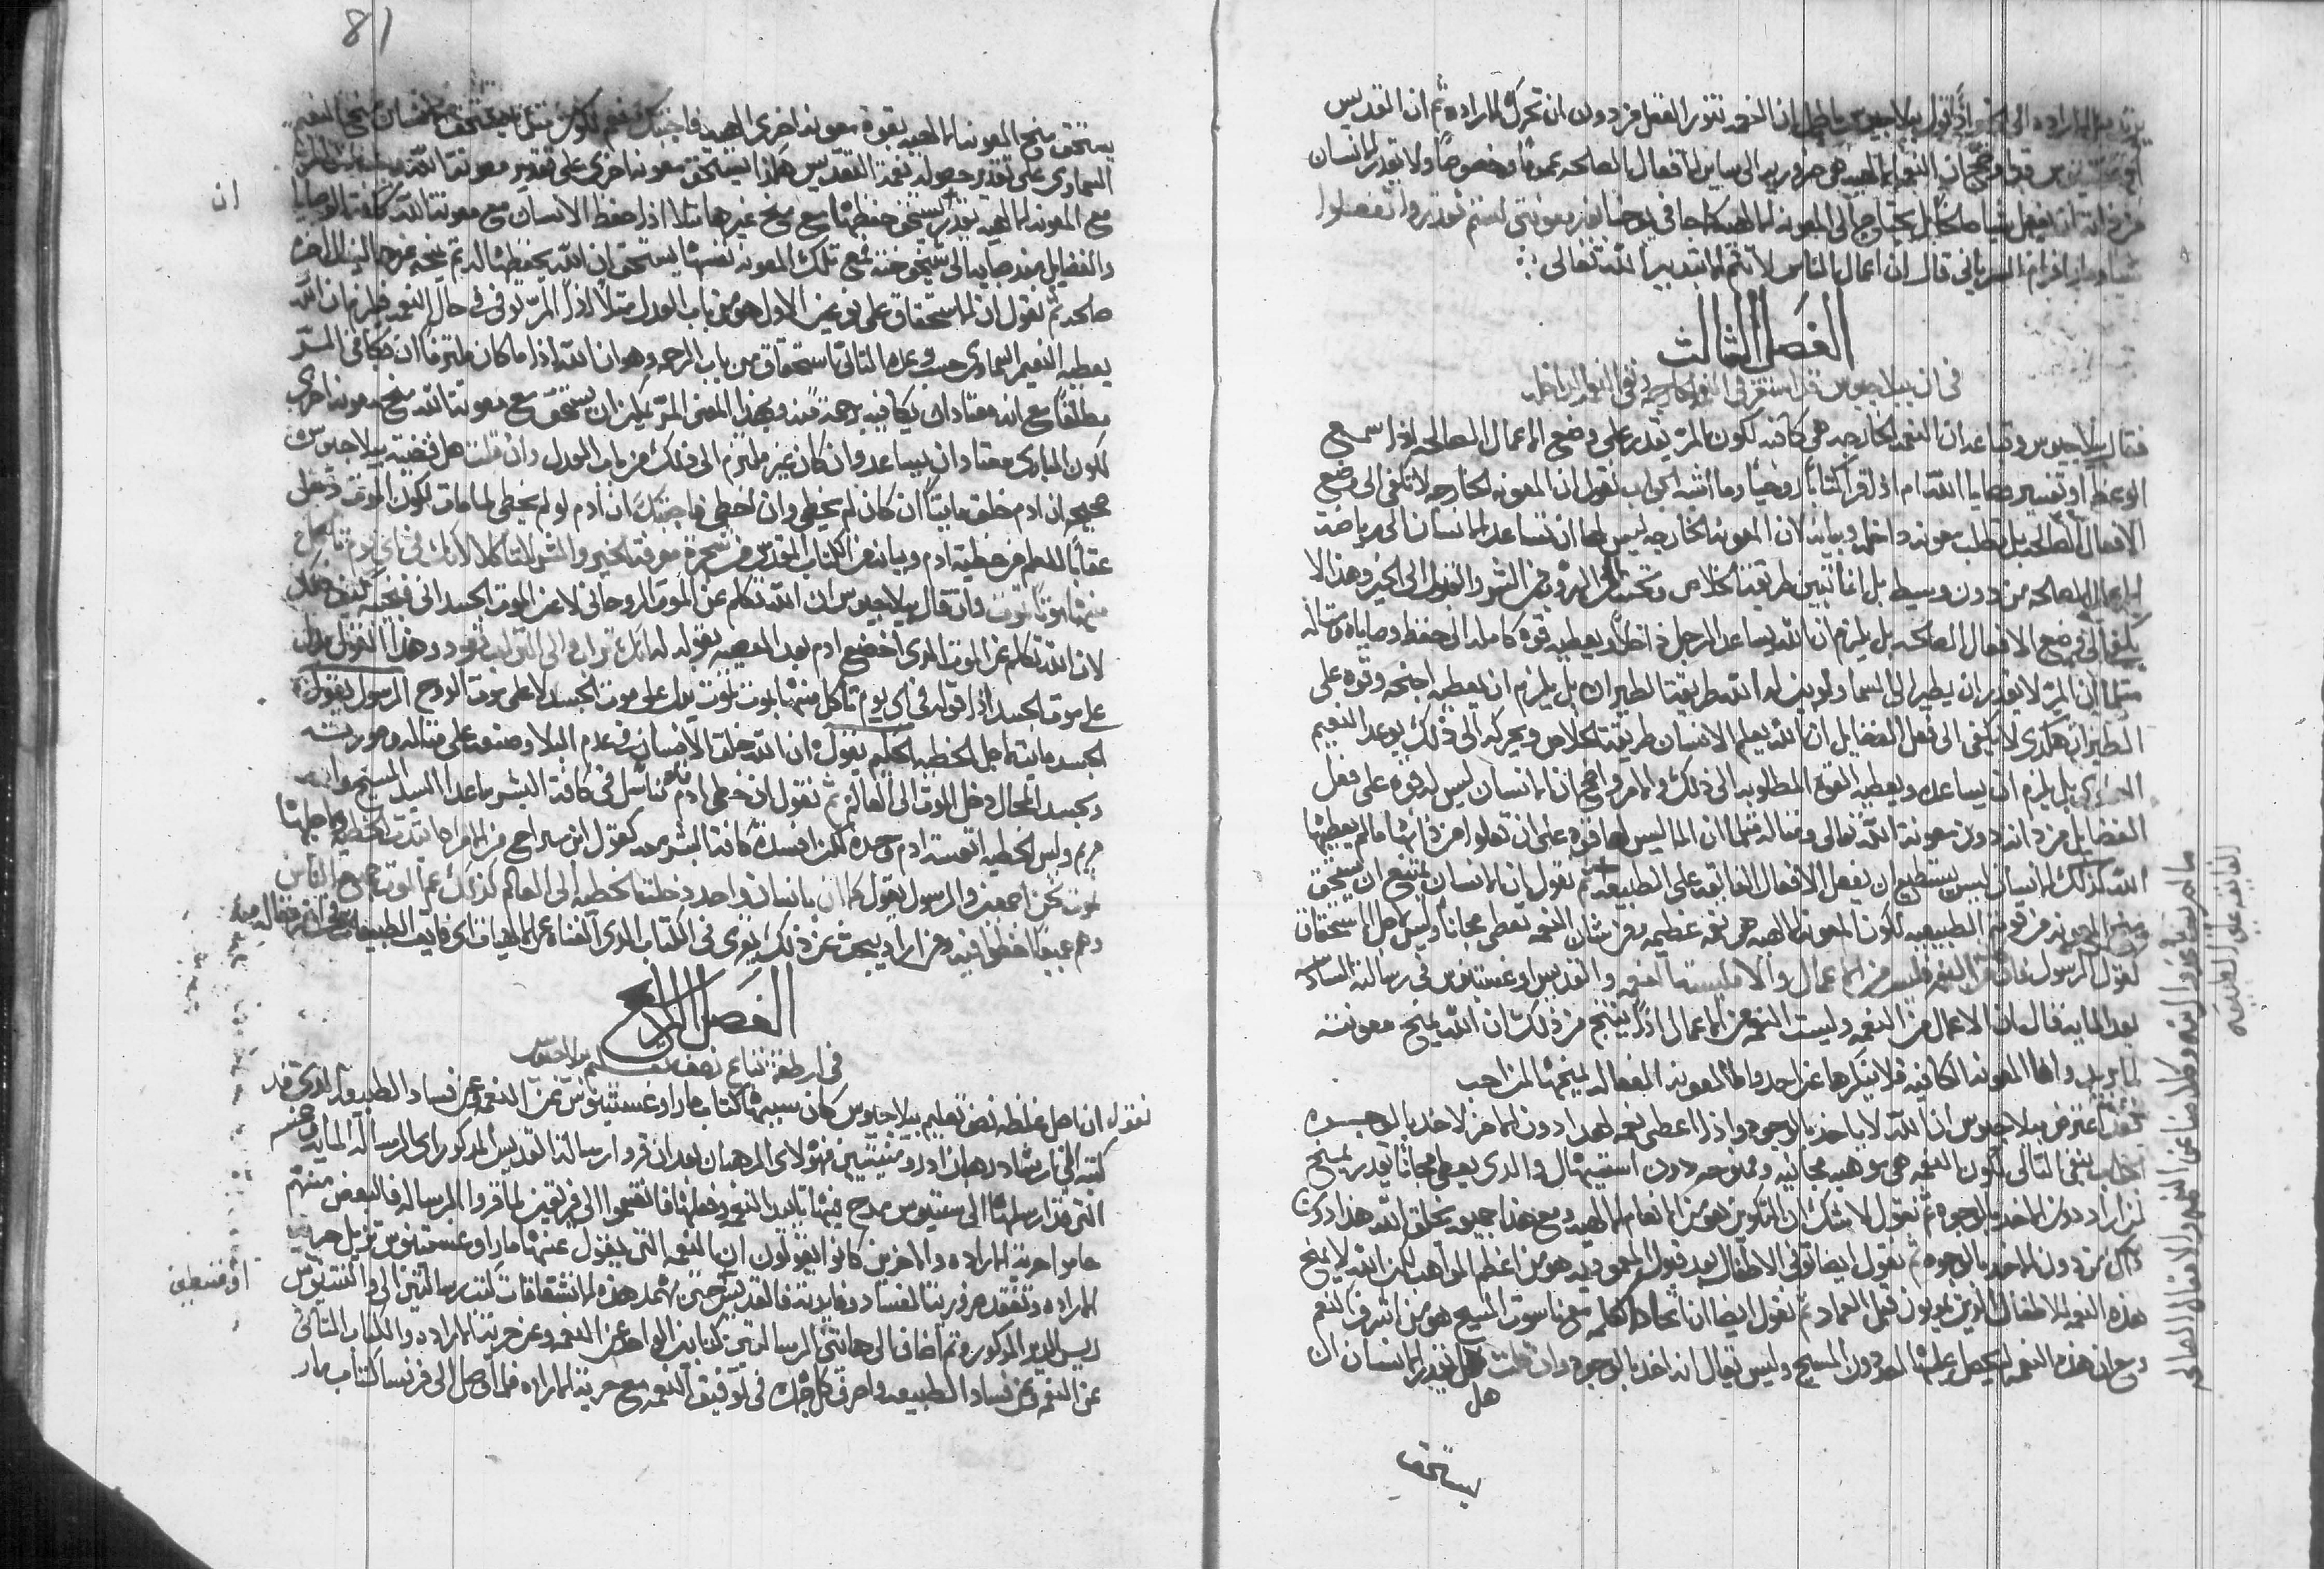 ان النعمه تنور العقل من دون ان تحرك الاراده ثم ان القديس
ان النعمه الالهيه هي ضروريه الى ساير الافعال الصالحه عموما وخصوصا ولا يقدر الانسان
من ذاته ان يفعل شيا صالحا بل يحتاج الى المعونه الالهيه كما جا في يوحنا بغير معونتي لستم تقدروا تفعلوا
شيا ومار افرام السرياني قال ان اعمال الناس لا تتم الا بتدبير الله تعالى
الفصل الثالث
في ان بيلاجيوس قد استقر في النعمه الخارجه ونفى النعمه الداخله
فقال بيلاجيوس وتباعه ان النعمه الخارجه هي كافيه لكون المر يقدر على وضع الاعمال الصالحه اذا سمع
الوعظ او تفسير وصايا الله ام اذا قرا كتابا روحيا وما اشبه الجواب نقول ان المعونه الخارجه لا تكفي الى وضع
الافعال الصالحه بل تطلب معونه داخله وبيانه لان المعونه الخارجه ليس لها ان تساعد الانسان الى رياضة
الاعمال الصالحه من دون وسيط بل انما تبين طريقة الخلاص وتحث الى الهروب من الشر والقبول الى الخير وهذا لا
يكفي الى وضع الافعال الصالحه بل يلزم ان الله يساعد الرجل داخلا ويعطيه قوه كامله الى حفظ وصاياه مثاله
مثلما ان المر لا يقدر ان يطير الى السما ولو بين له الله طريقة الطيران بل يلزم ان يعطيه اجنحه وقوه على
الطيران هكذى لا يكفي الى فعل الفضايل ان الله يعلم الانسان طريقة الخلاص ويحركه الى ذلك بوعد النعيم
السماوي بل يلزم ان يساعده ويعطيه القوه المطلوبه الى ذلك والامر واضح ان الانسان ليس له قوه على فعل
الفضايل من ذاته دون معونة الله تعالى ومثاله مثلما ان الما ليس لها قوه على ان تعلوا من ذاتها ما لم يعطيها
الله كذلك الانسان ليس يستطيع ان يفعل الافعال الفايقه على الطبيعه ثم نقول ان الانسان يمتنع ان يستحق
منح المعونه من قوته الطبيعيه لكون المعونه الالهيه هي نعمه عظيمه ومن شان النعمه تعطى مجانا وليس لاجل الاستحقاق
كقول الرسول فان كان من النعمه فليس من الاعمال والا فليست النعمه والقديس اوغسيتينوس في رسالته السادسه
بعد المايه قال ان الاعمال من النعمه وليست النعمه من الاعمال اذا ينتج من ذلك ان الله يمنح معونته
لما يريد واما المعونه الكافيه فلا ينكرها عن احد واما المعونه الفعاله يمنحها لمن احب
اعترض بيلاجيوس ان الله لا ياخذ بالوجوه واذا اعطى نعمه لهذا دون الاخر لاخذ بالوجوه
الجواب ينفى التالي لكون النعمه هي موهبه مجانيه وممنوحه دون استيهال والذي يعطي مجانا يقدر يمنح
لمن اراد دون الاخذ بالوجوه ثم نقول لا شك ان التكوين هو من الانعام الالهيه ومع هذا جميعه يخلق الله هذا دون
ذاك من دون الاخذ بالوجوه ثم نقول ايضا توفي الاطفال بعد قبول المعموديه هو من اعظم المواهب لكن الله لا يمنح
هذه النعمه للاطفال الذين يموتون قبل العماد ثم نقول ايضا ان اتحاد الكلمه مع ناسوت المسيح هو من اشرف النعم
ومع ان هذه النعمه لم يحصل عليها احد دون المسيح وليس يقال انه اخذ بالوجوه وان قلت هل يقدر الانسان ان
هل
يستحق
الفايقه على الطبيعه
81
يستحق منح المعونه الالهيه بقوة معونه اخرى الهيه فاجبتك نعم لكون مثلما يستحق الانسان منح النعيم
السماوي على تقدير حصوله بنعمة التقديس هكذا يستحق معونه اخرى على تقدير معونة الله
ان
مع المعونه الالهيه يقدر يستحق حفظها مع منح غيرها مثلا اذا حفظ الانسان مع معونة الله كافة الوصايا
والفضايل من صباه الى شيخوخته فمع تلك المعونه نفسها يستحق ان الله يحفظها له ثم يمنحه غيرها لينال اخرة
صالحه ثم نقول ان الاستحقاق على نوعين الاول هو من باب العدل مثلا اذا المر توفي في حال النعمه فلزم ان الله
يعطيه النعيم السماوي حسب وعده الثاني استحقاق من باب الرحمه وهو ان الله اذا ما كان ملتزما ان يكافي المر
مطلقا مع انه معتاد ان يكافيه رحمة منه وبهذا المعنى المر يمكن ان يستحق مع معونة الله منح معونه اخرى
لكون الباري معتاد ان يساعد وان كان غير ملتزم الى ذلك من باب العدل وان قلت هل قضية بيلاجيوس
صحيحه ان ادم خلق مايتا ان كان لم يخطي وان اخطى فاجبتك ان ادم لو لم يخطي لما مات لكون الموت دخل
عقابا للعالم من خطية ادم وبيانه من الكتاب المقدس من شجرة معرفة الخير والشر لا تاكلا لانك في اي يوم تاكل
منها موتا تموت وان قال بيلاجيوس ان الله تكلم عن الموت الروحاني لا عن الموت الجسداني
لان الله تكلم عن الموت الذي اخضع ادم بعد المعصيه بقوله له انك تراب والى التراب تعود وهذا القول يدل
على موت الجسد اذا قوله في اي يوم تاكل منها موت تموت يدل على موت الجسد لا على موت الروح الرسول يقول
الجسد مايت لاجل الخطيه الحكيم يقول ان الله خلق الانسان في عدم البلا وصنعه على مثاله وصورته
وبحسد المحال دخل الموت الى العالم ثم نقول ان خطى ادم تناسل في كافة البشر ما عدا السيد المسيح وامه
مريم وليس الخطيه اتعبت ادم وحده لكن افسدت كافة البشريه كقول ابن سيراخ من الامراه ابتدت الخطيه ومن اجلها
نموت نحن اجمعين والرسول يقول كما ان بانسان واحد دخلت الخطيه الى العالم كذلك عم الموت جميع الناس
وهم جميعا اخطوا فيه ومن اراد يبحث عن ذلك يرى في الكتاب الذي الفناه عن الالهيات
الفصل الرابع
في اراطقة تتباع نصف تعليم بيلاجيوس
نقول ان اصل غلطه نصف تعليم بيلاجيوس كان سببها كتاب مار اوغسيتينوس عن النعمه وعن فساد الطبيعه الذي قد
كتبه الى ارشاد رهبان ادروميتيين فهولاي الرهبان بعد ان قروا رسالة القديس المذكور اي الرساله المايه وخمسه
التي قد ارسلها الى سيتوس يمدح فيها تاييد النعمه وفعلها فانقسموا الى فريقين لما قروا الرساله فالبعض منهم
حاموا حرية الاراده والاخرين كانوا يقولون ان النعمه التي يقول عنها مار اوغسيتينوس تزيل حرية
اوغسطين
الاراده وتفقد ضرورية الفساد وفايدته فالقديس حين يخمد هذه الانشقاقات كتب رسالتين الى والنتينوس
ريس الدير المذكور وثم اضاف الى هاتين الرسالتين كتابين الواحد عن النعمه وعن حرية الاراده والكتاب الثاني
عن النعمه وعن فساد الطبيعه واصرف كل جهده في توفيق النعمه مع حرية الاراده فلما وصل الى فرنسا كتاب مار